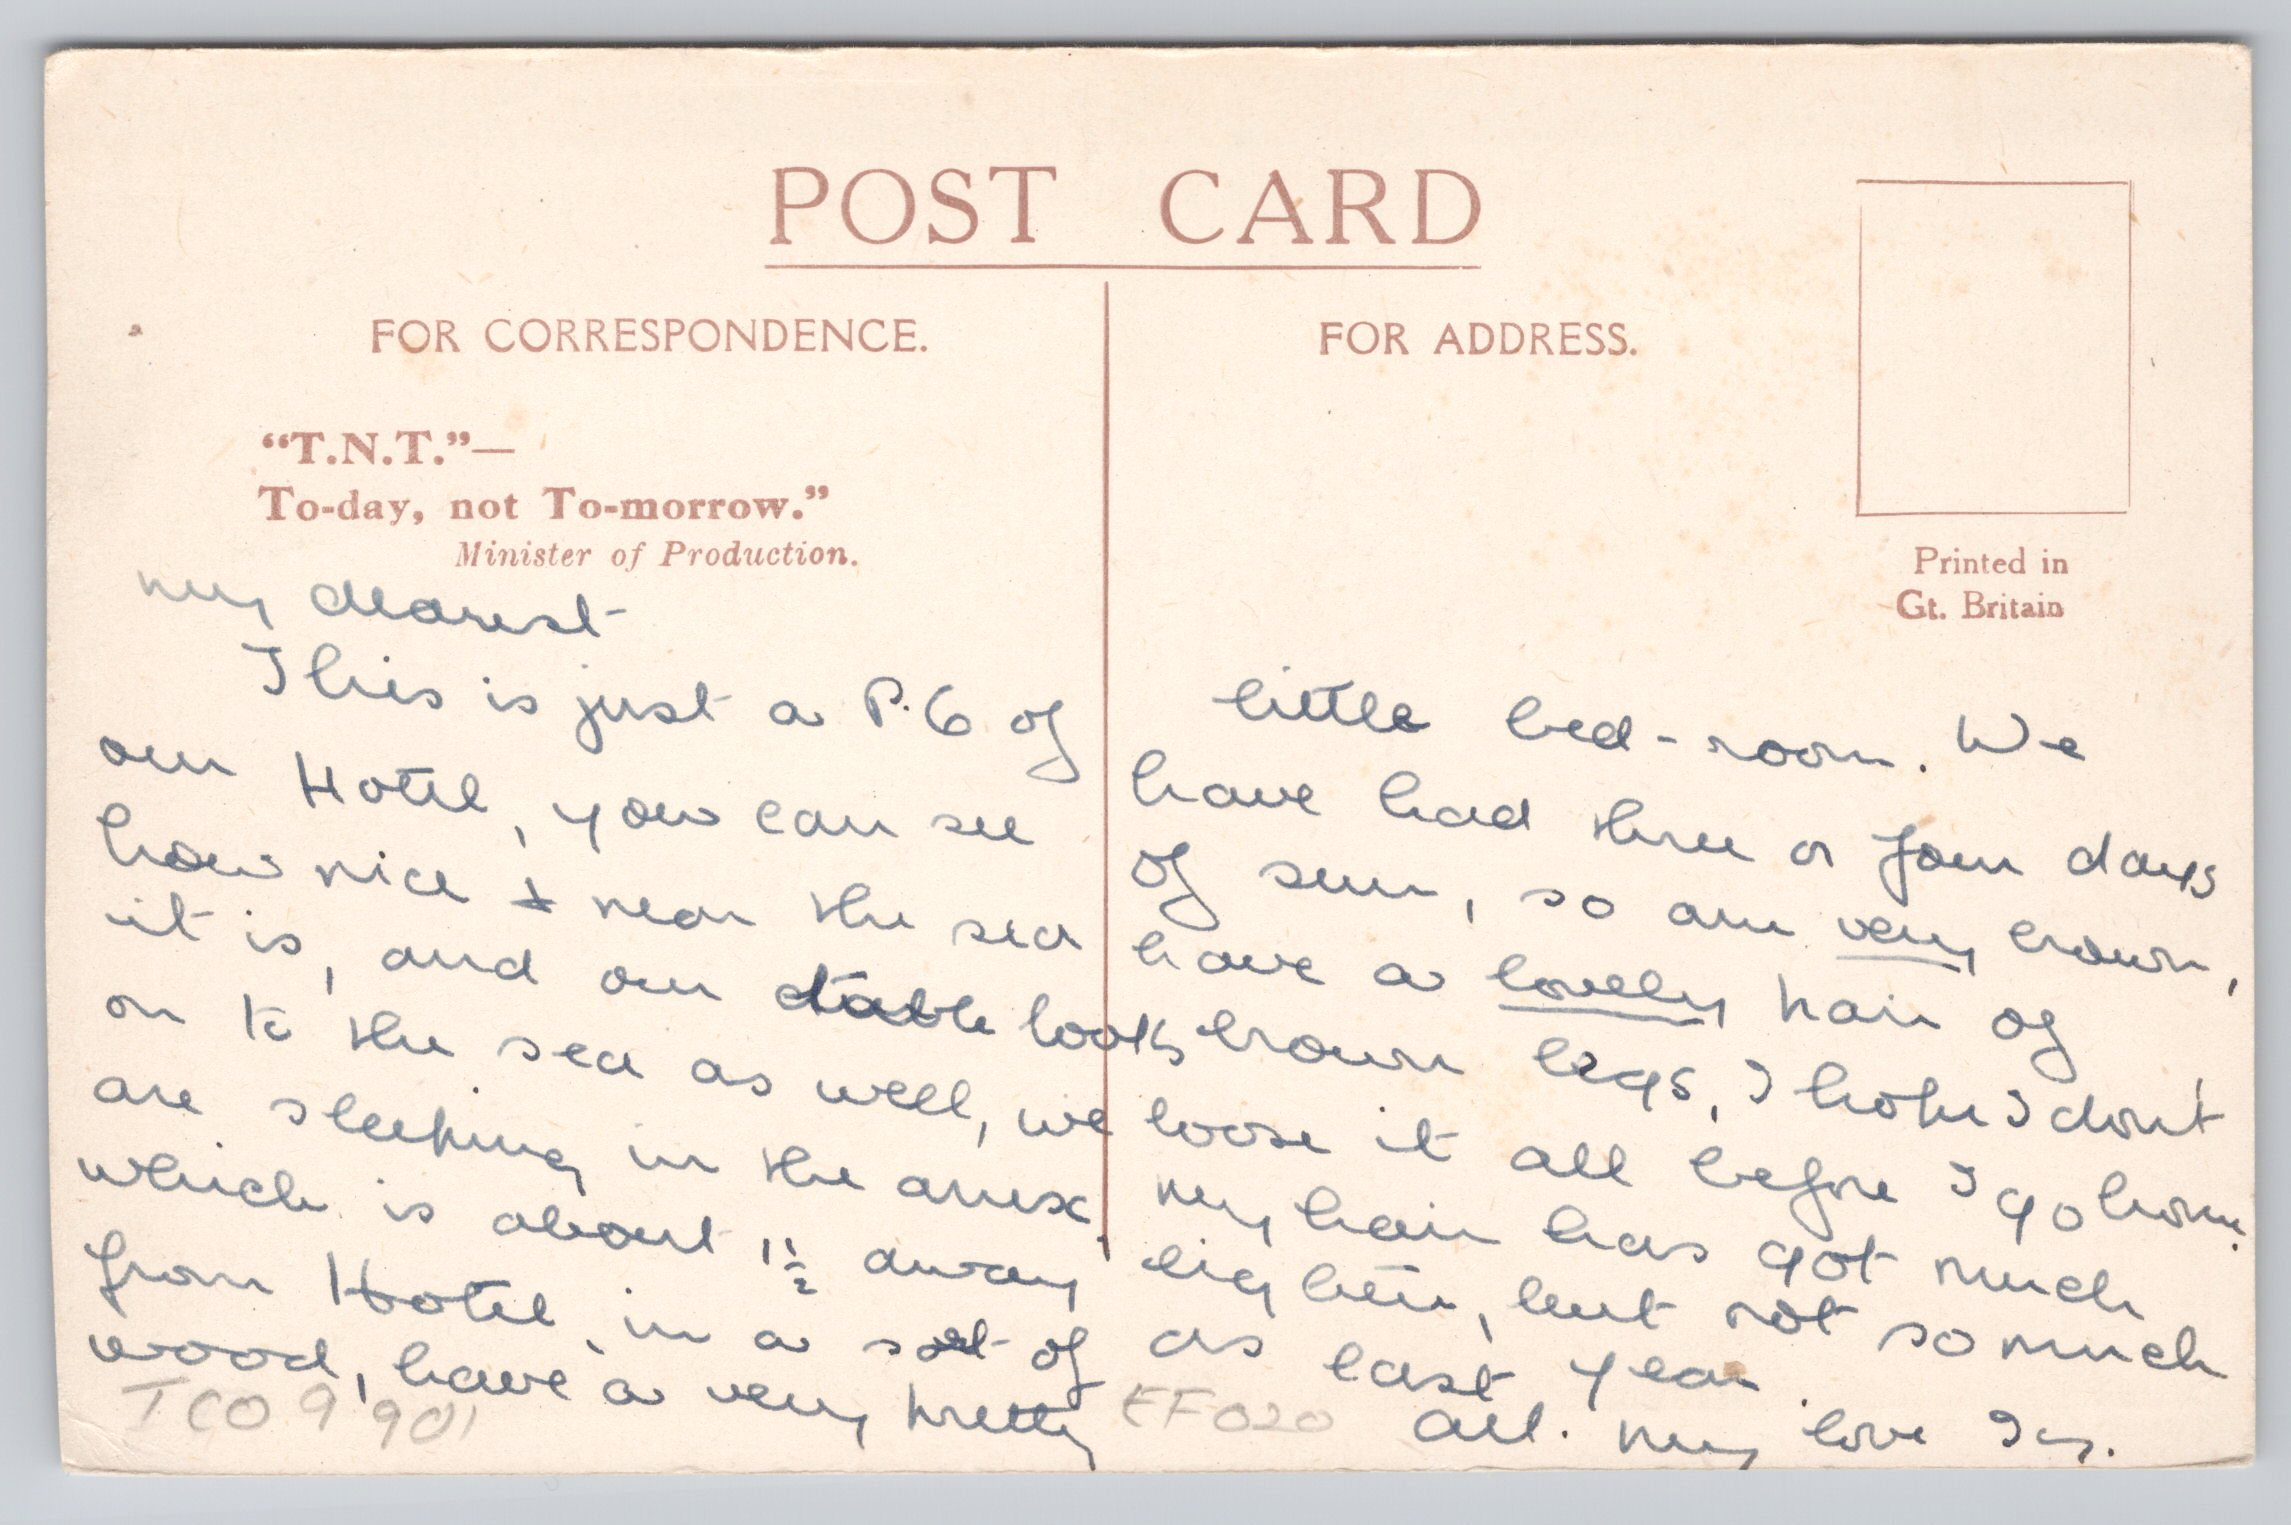 POST CARD
FOR CORRESPONDENCE.
FOR ADDRESS.
"T.N.T."—
To-day, not To-morrow."
Minister of Production.
Printed in
Gt. Britain
my dearest
This is just a P.C of
our Hotel, you can see
how nice & near the sea
it is, and our table looks
on to the sea as well, we
are sleeping in the anex,
which is about 1½ away
from Hotel, in a sort of
wood, have a very pretty
little bed-room. We
have had three or four days
of sun, so am very brown,
have a lovely pair of
brown legs, I hope I dont
loose it all before I go home.
my hair has got much
lighter, but not so much
as last year.
All. my love
TCO 9 901
EF020